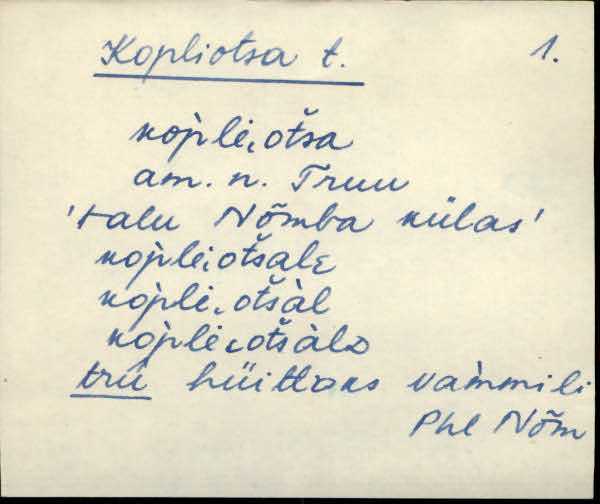 Kopliotsa t. 1.
kop̀li͔otša
am. n. Truu
'talu Nõmba külas'
kop̀li͔otšalɛ
kop̀li͔otšàl
kop̀li͔otšàlᴅ
trū hüittaks vaìmmili
Phl Nõm